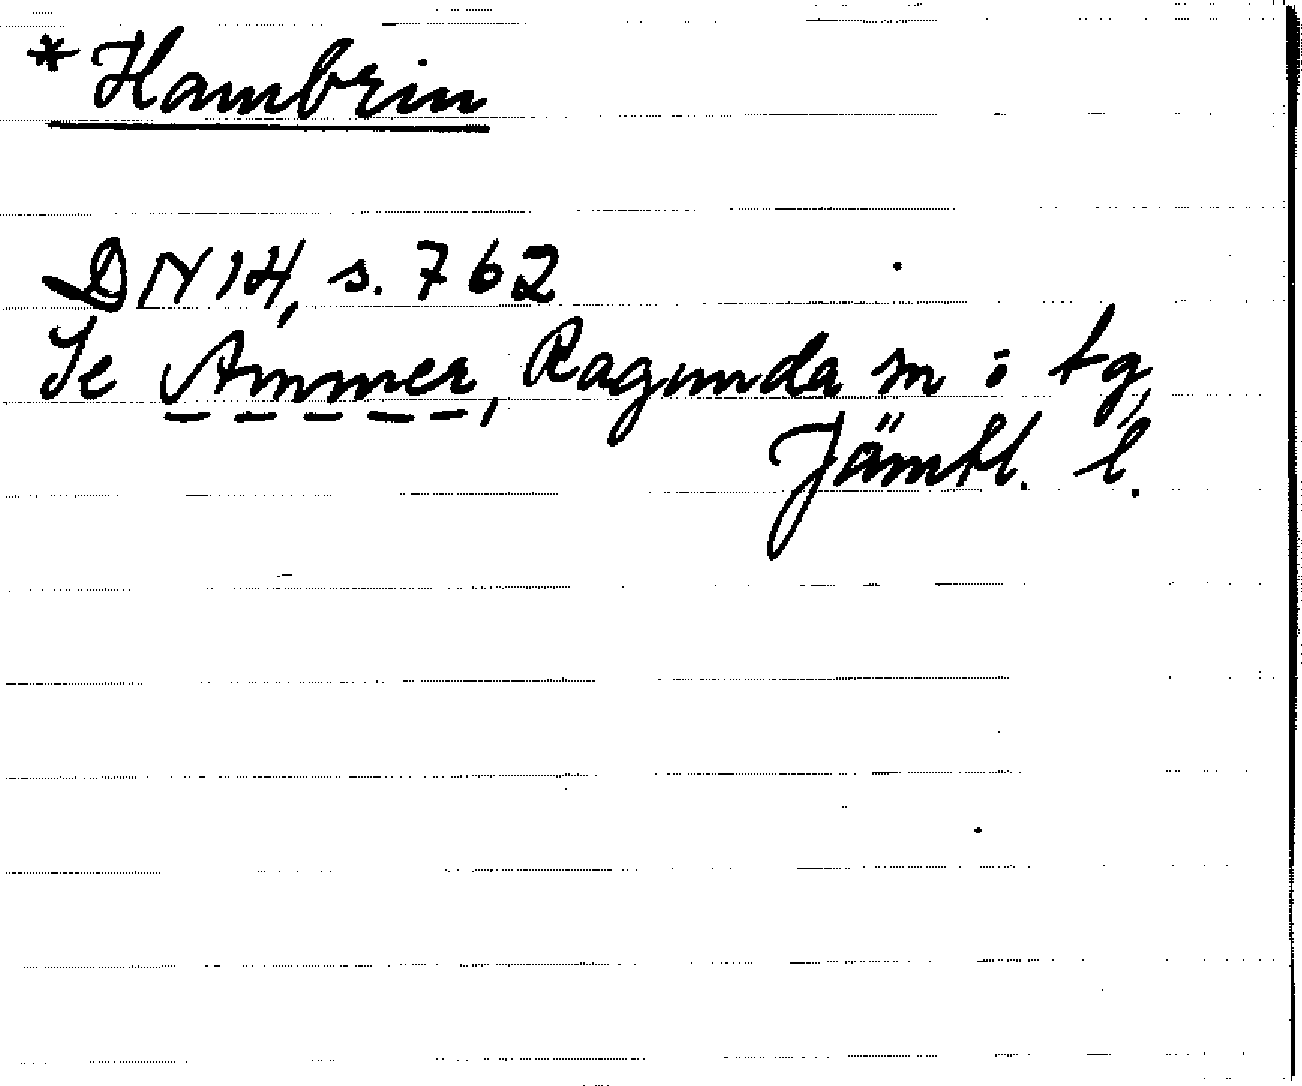 *Hambrin
DN 14, s. 762
Se Ammer, Ragunda sn i tg,
Jämtl. l.